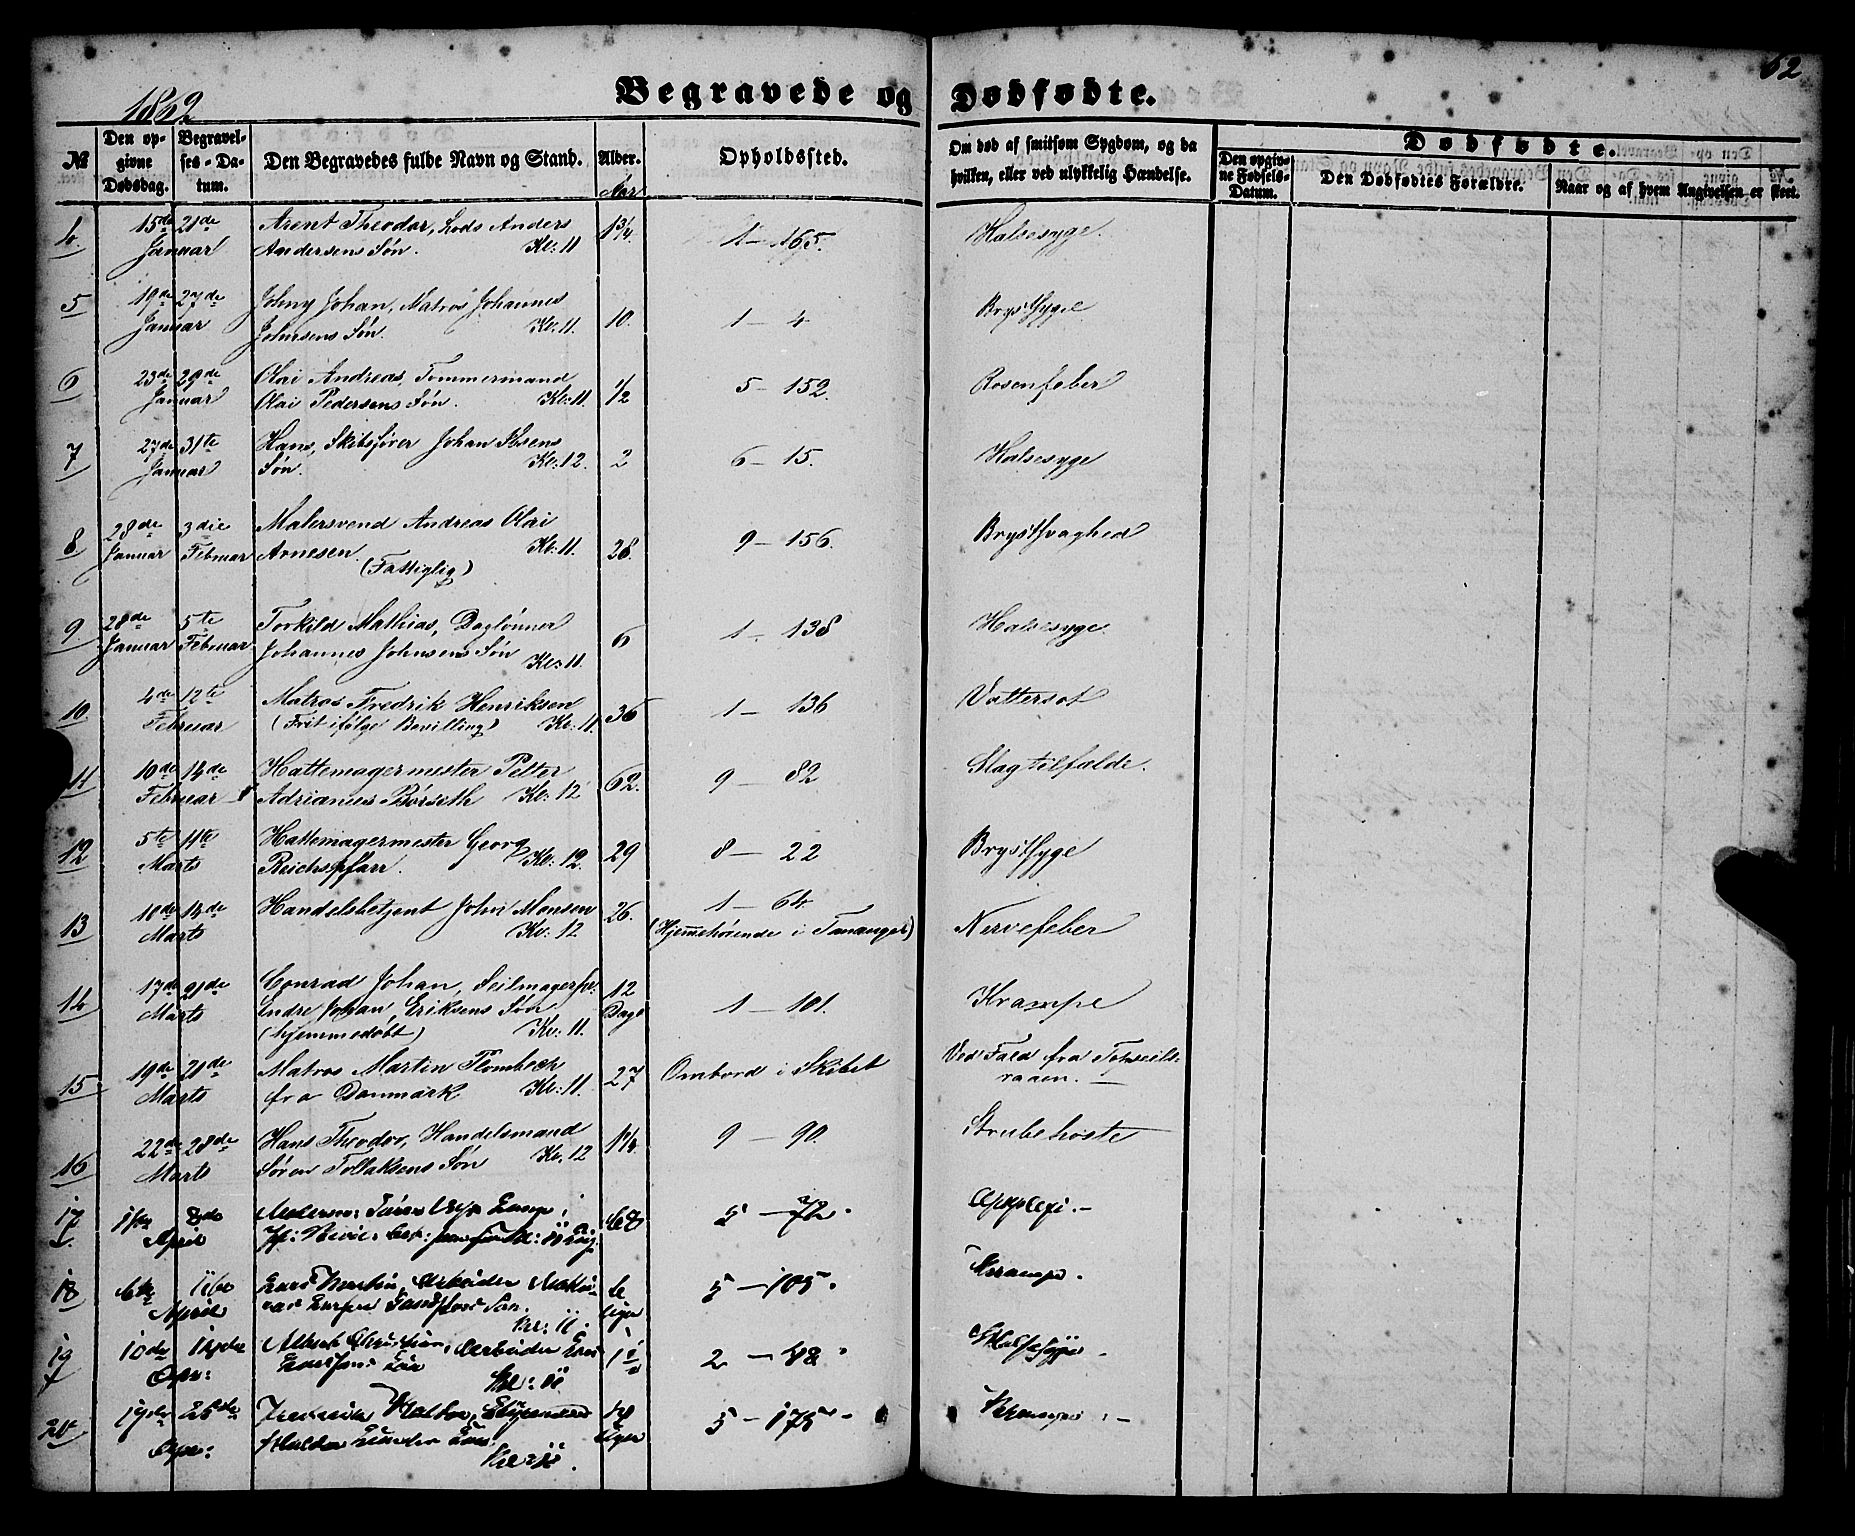 62
1862
Begravede og Dødfødte.
№
Den opgivne Dødsdag.
Begravelses-Datum.
Den Begravedes fulde Navn og Stand.
Alder.
Aar
Opholdssted.
Om død af smitsom Sygdom, og da
hvilken, eller ved ulykkelig Hændelse.
Dødfødte.
Den opgivne Fødsels-Datum.
Den Dødfødtes Forældre.
Naar og af hvem Angivelsen er skeet.
4 15de 21de Arent Theodor, Lods Anders 1¾ 1 – 165. Halsesyge.
Januar Andersens Søn. Kl: 11
5 19de 27de Johny Johan, Matros Johannes 10. 1 – 4 Brystsyge
Januar Johnsens Søn. Kl: 11.
6 23de 29de Olai Andreas, Tømmermand ½ 5 – 152. Rosenfeber
Januar Olai Pedersens Søn. Kl: 11.
7 27de 31te Hans, Skibsfører Johan Ibsens 2 6 – 15. Halsesyge
Januar Søn. Kl: 12.
8 28de 3die Malersvend Andreas Olai 28. 9 – 156. Brystsvaghed
Januar Februar Arnesen. Kl: 11.
(Fattiglig)
9 28de 5te Torkild Mathias, Daglønner 6 1 – 138 Halsesyge.
Januar Februar Johannes Johnsens Søn
Kl: 11.
10 4de 12te Matros Fredrik Henriksen 36 1 – 136 Vattersot
Februar (Frit ifølge Bevilling) Kl: 11.
11 10de 14de Hattemagermester Petter 62. 9 – 82 Slagtilfælde.
Februar Adrianus Børseth Kl: 12
12 5te 11te Hattemagermester Georg 29 8 – 22 Brystsyge
Marts Reichspfarr. Kl: 12.
13 10de 14de Handelsbetjent John Monsen 26. 1 – 64. Nervefeber
Marts Kl: 12 (Hjemmehørende i Tananger)
14 17de 21de Conrad Johan, Seilmagersv: 12 1 – 101. Krampe
Marts Endre Johan Eriksens Søn Dage
(hjemmedøbt) Kl: 11.
15 19de 21de Matros Martin Plombech 27 Ombord i Skibet Ved Fald fra Topseils-
Marts fra Danmark Kl: 11. raaen.
16 22de 28de Hans Theodor, Handelsmand 1¼ 9 – 90. Strubehoste
Marts Søren Tollaksens Søn Kl: 12
17 1ste 8de 68 5 – 72. Apoplexi.
April
18 6te 11te Lars Martin, Arbeider 6 5 – 105. Krampe.
April Søn. Uger
Kl: 11.
19 10de Albert Christian, Arbeider 2 – 48. Halsesyge.
Apr: Søn
Kl: 11
20 19de 5 – 175. Krampe.
Apr: Søn. Uger
Kl: 11.